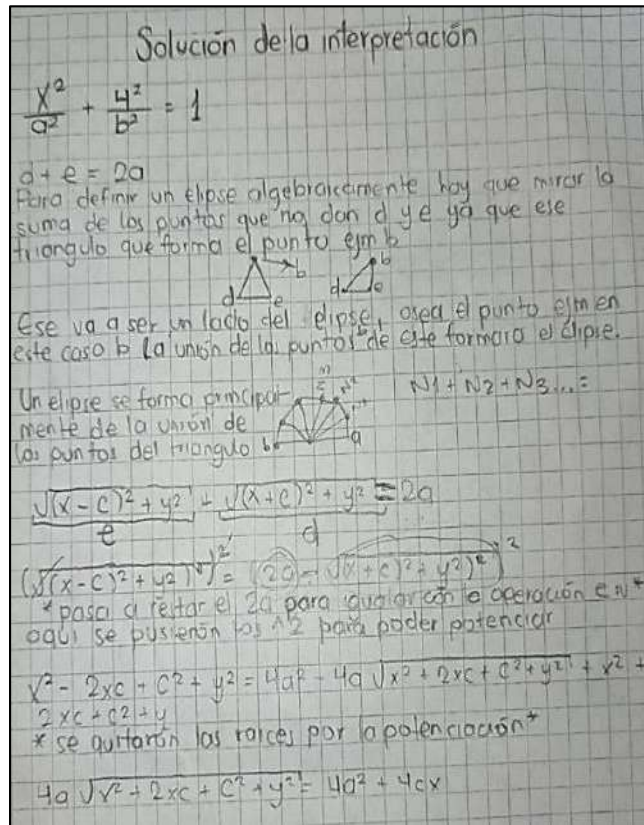 Solución de la interpretación
x²/a² + y²/b² = 1
d + e = 2a
Para definir un elipse algebraicamente hay que mirar la
suma de los puntos que no dan d y e ya que ese
triangulo que forma el punto ejm b
b b
d e d e
Ese va a ser un lado del elipse, osea el punto ejm en
este caso b la unión de la puntos de este formara el elipse.
Un elipse se forma principal-
mente de la unión de
los puntos del triangulo b a
N1 + N2 + N3... =
√(x - c)² + y² + √(x + c)² + y² = 2a
e d
(√(x - c)² + y²)² = (2a - √(x + c)² + y²)²
*pasa a restar el 2a para igualar con la operación en*
aqui se pusieron los ^2 para poder potenciar
x² - 2xc + c² + y² = 4a² - 4a √x² + 2xc + c² + y² + x² +
2xc + c² + y
* se quitarón las raices por la potenciación*
4a √x² + 2xc + c² + y² = 4a² + 4cx